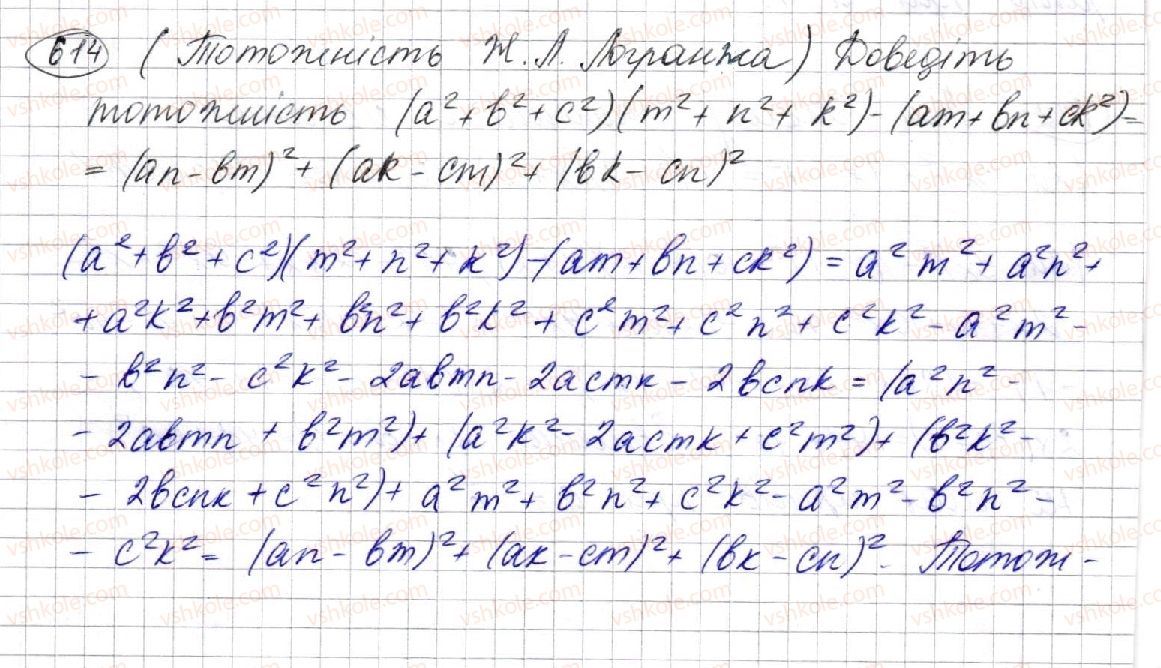 614 (Тотожність Ж. Л. Логранжа) Доведіть
тотожність (a² + b² + c²)(m² + n² + k²) - (am + bn + ck²) =
= (an - bm)² + (ak - cm)² + (bk - cn)²
(a² + b² + c²)(m² + n² + k²) - (am + bn + ck²) = a²m² + a²n² +
+ a²k² + b²m² + b²n² + b²k² + c²m² + c²n² + c²k² - a²m² -
- b²n² - c²k² - 2abmn - 2acmk - 2bcnk = (a²n² -
- 2abmn + b²m²) + (a²k² - 2acmk + c²m²) + (b²k² -
- 2bcnk + c²n²) + a²m² + b²n² + c²k² - a²m² - b²n² -
- c²k² = (an - bm)² + (ak - cm)² + (bk - cn)². Тотож -
vshkole.com